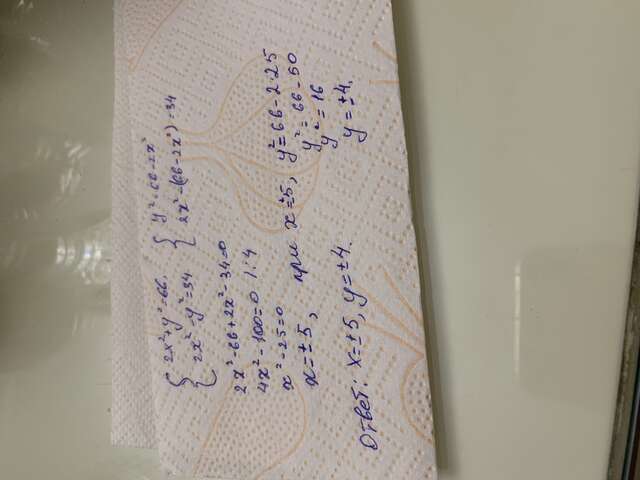 { 2x²+y²=66, { y²=66-2x²
{ 2x²-y²=34 { 2x²-(66-2x²)=34
2x²-66+2x²-34=0
4x²-100=0 /:4
x²-25=0
x=±5, при x=±5, y²=66-2·25
y²=66-50
y²=16
y=±4.
Ответ: x=±5, y=±4.